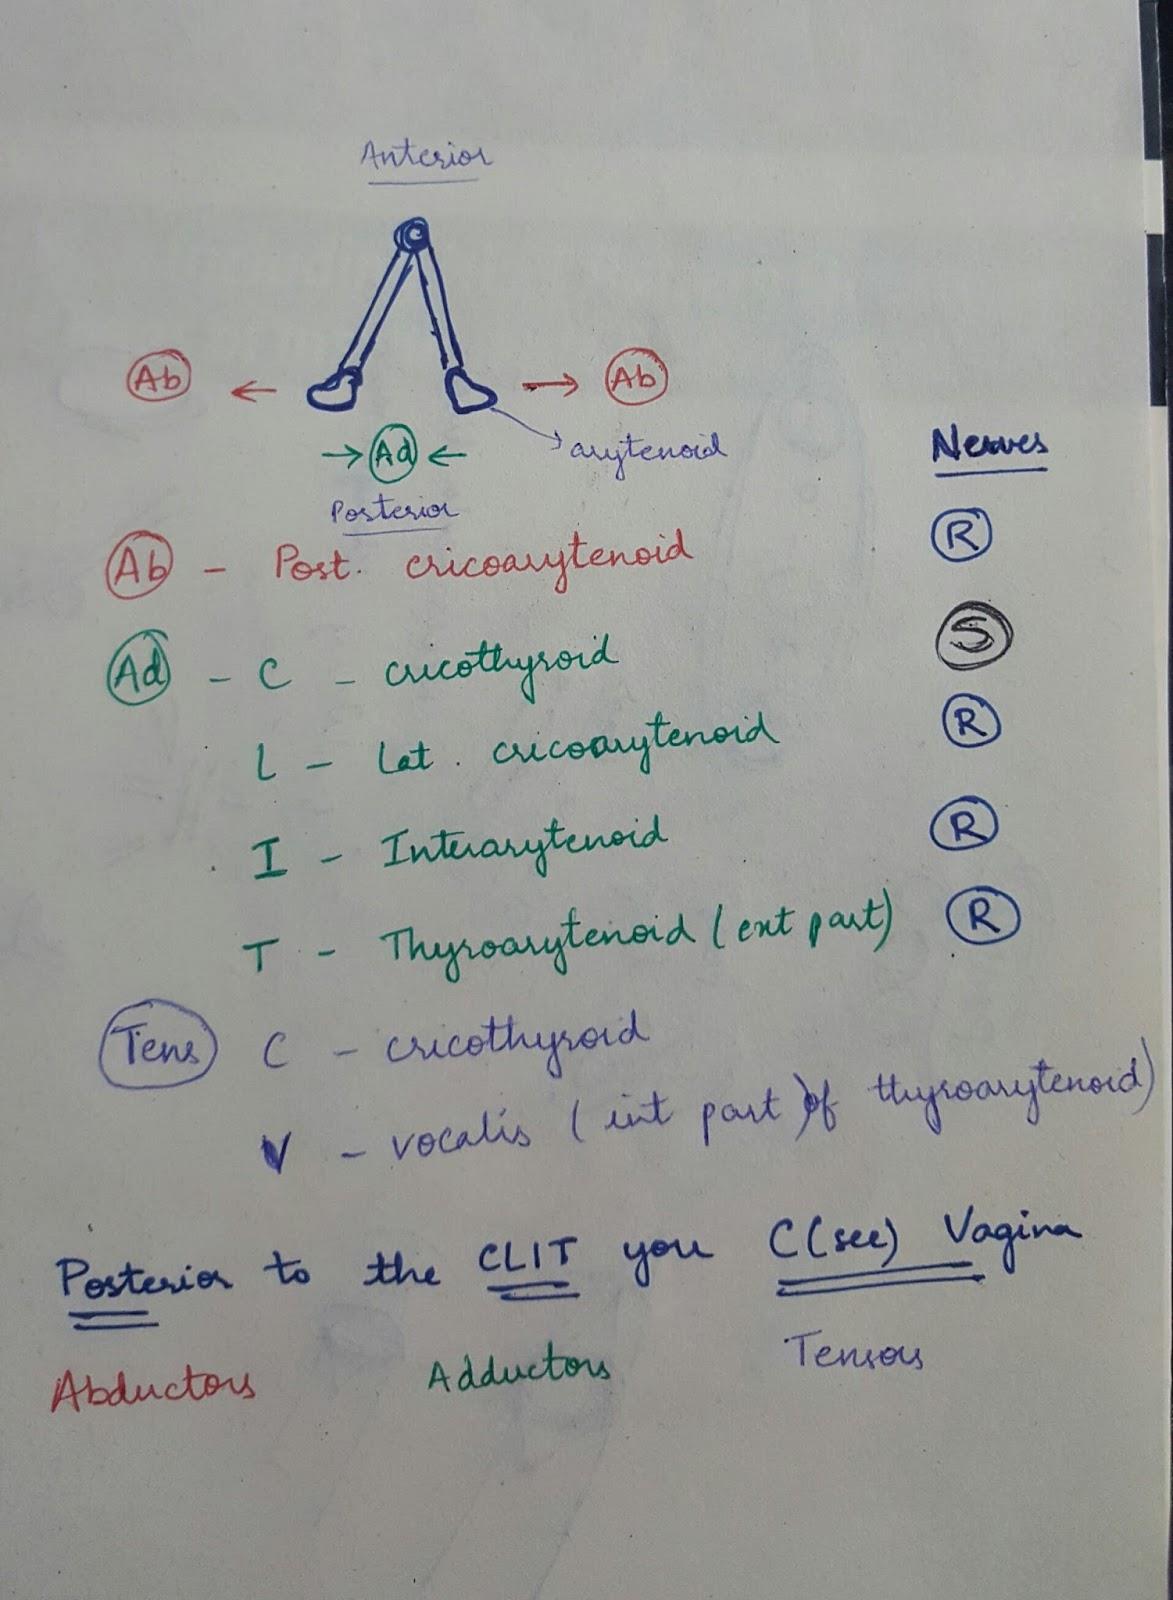 Anterior
Ab ← → Ab
→ Ad ← arytenoid
Posterior
Nerves
Ab - Post. cricoarytenoid R
Ad - C - cricothyroid S
L - Lat. cricoarytenoid R
I - Interarytenoid R
T - Thyroarytenoid (ext part) R
Tens C - cricothyroid
V - vocalis (int part) of thyroarytenoid)
Posterior to the CLIT you C(see) Vagina
Abductors Adductors Tensors